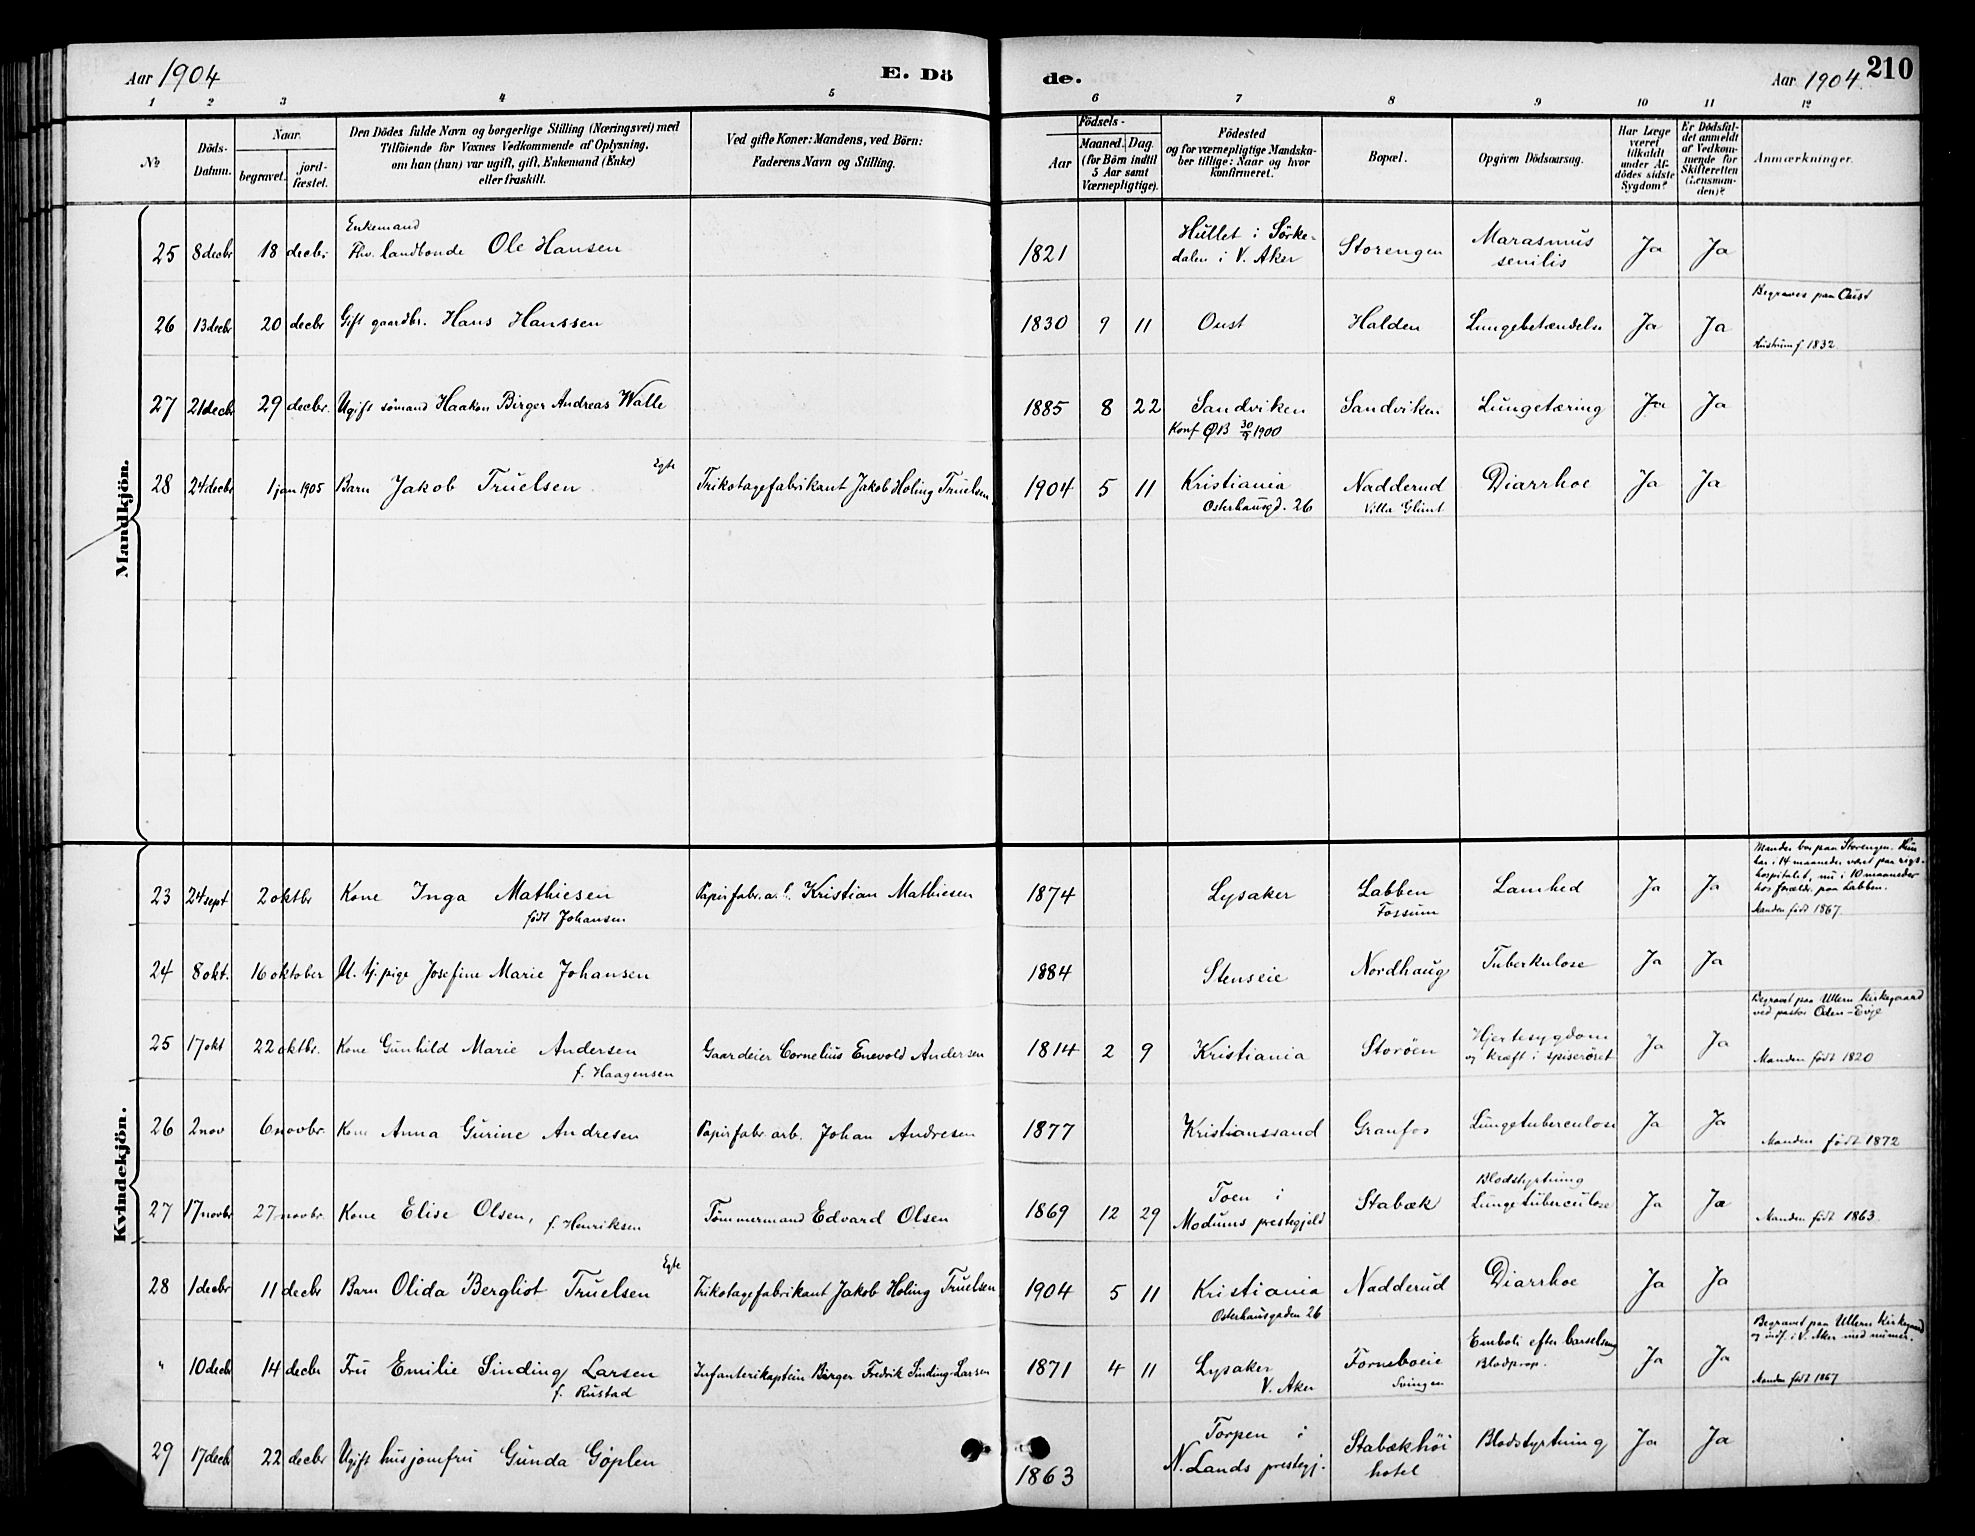 Aar 1904
E. Dö
de.
Aar 1904
210
1 2 3 4 5 6 7 8 9 10 11 12
№
Döds-Datum.
Naar
begravet.
jordfæstet.
Den Dödes fulde Navn og borgerlige Stilling (Næringsvei) med
Tilföiende for Voxnes Vedkommende af Oplysning,
om han (hun) var ugift, gift, Enkemand (Enke)
eller fraskilt.
Ved gifte Koner: Mandens, ved Börn:
Faderens Navn og Stilling.
Födsels-
Aar
Maaned. Dag.
(for Börn indtil
5 Aar samt
Værnepligtige).
Födested
og for værnepligtige Mandskaber tillige: Naar og hvor
konfirmeret.
Bopæl.
Opgiven Dödsaarsag.
Har Læge været tilkaldt under Afdödes sidste Sygdom?
Er Dödsfaldet anmeldt af Vedkommende for Skifteretten (Lensmanden)?
Anmærkninger.
Mandkjön.
Enkemand
25 8 decbr 18 decbr Fhv. landbonde Ole Hansen 1821 Hullet i Sörkedalen i V. Aker Storengen Marasmus senilis Ja Ja
26 13 decbr 20 decbr Gift gaardbr. Hans Hanssen 1830 9 11 Oust Halden Lungebetændelse Ja Ja Begraves paa Oust
Hustrum f 1832
27 21 decbr 29 decbr. Ugift sömand Haakon Birger Andreas Walle 1885 8 22 Sandviken Sandviken Lungetæring Ja Ja
Konf ØB 30/9 1900
28 24 decbr 1 jan 1905 Barn Jakob Truelsen Egte Trikotagefabrikant Jakob Holing Truelsen 1904 5 11 Kristiania Nadderud Diarrhoe Ja Ja
Osterhausgd. 26 Villa Glimt
Kvindekjön.
23 24 sept 2 oktbr Kone Inga Mathiesen Papirfabr. a. Kristian Mathiesen 1874 Lysaker Labben Lamhed Ja Ja
födt Johansen Fossum
Manden bor paa Storengen. Hun
har i 14 maaneder været paa rigshospitalet, nu i 10 maaneder
hos forældr. paa Labben.
Manden födt 1867
24 8 okt. 16 oktober U. tj. pige Josefine Marie Johansen 1884 Stenseie Nordhaug Tuberkulose Ja Ja
25 17 okt 22 oktbr. Kone Gunhild Marie Andersen Gaardeier Cornelius Enevold Andersen 1814 2 9 Kristiania Storöen Hjertesygdom
og kræft i spiseröret Ja Ja
f. Haagensen
Begravet paa Ullern kirkegaard
ved pastor Oden-Evje
Manden födt 1820
26 2 nov 6 novbr. Kone Anna Gurine Andresen Papirfabr. arb. Johan Andresen 1877 Kristianssand Granfos Lungetuberculose Ja Ja Manden födt 1872
27 17 novbr 27 novbr. Kone Elise Olsen, f. Henriksen Tömmermand Edvard Olsen 1869 12 29 Toen i
Modums prestegjeld Stabæk Blodstyrtning
Lungetuberculose Ja Ja Manden födt 1863
28 1 decbr 11 decbr Barn Olida Bergliot Truelsen Egte Trikotagefabrikant Jakob Holing Truelsen 1904 5 11 Kristiania Nadderud Diarrhoe Ja Ja
Osterhausgaden 26
" 10 decbr 14 decbr Fru Emilie Sinding Larsen Infanterikaptein Birger Fredrik Sinding-Larsen 1871 4 11 Lysaker Forneboeie Emboli efter barselseng
f. Rustad V. Aker Svingen Blodprop. Ja Ja
Begravet paa Ullern Kirkegaard
og indf. i V. Aker med numer.
Manden födt 1867
29 17 decbr 22 decbr Ugift husjomfru Gunda Göplen 1863 Torpen i
N. Lands prestegj. Stabækhöi
hotel Blodstyrtning Ja Ja